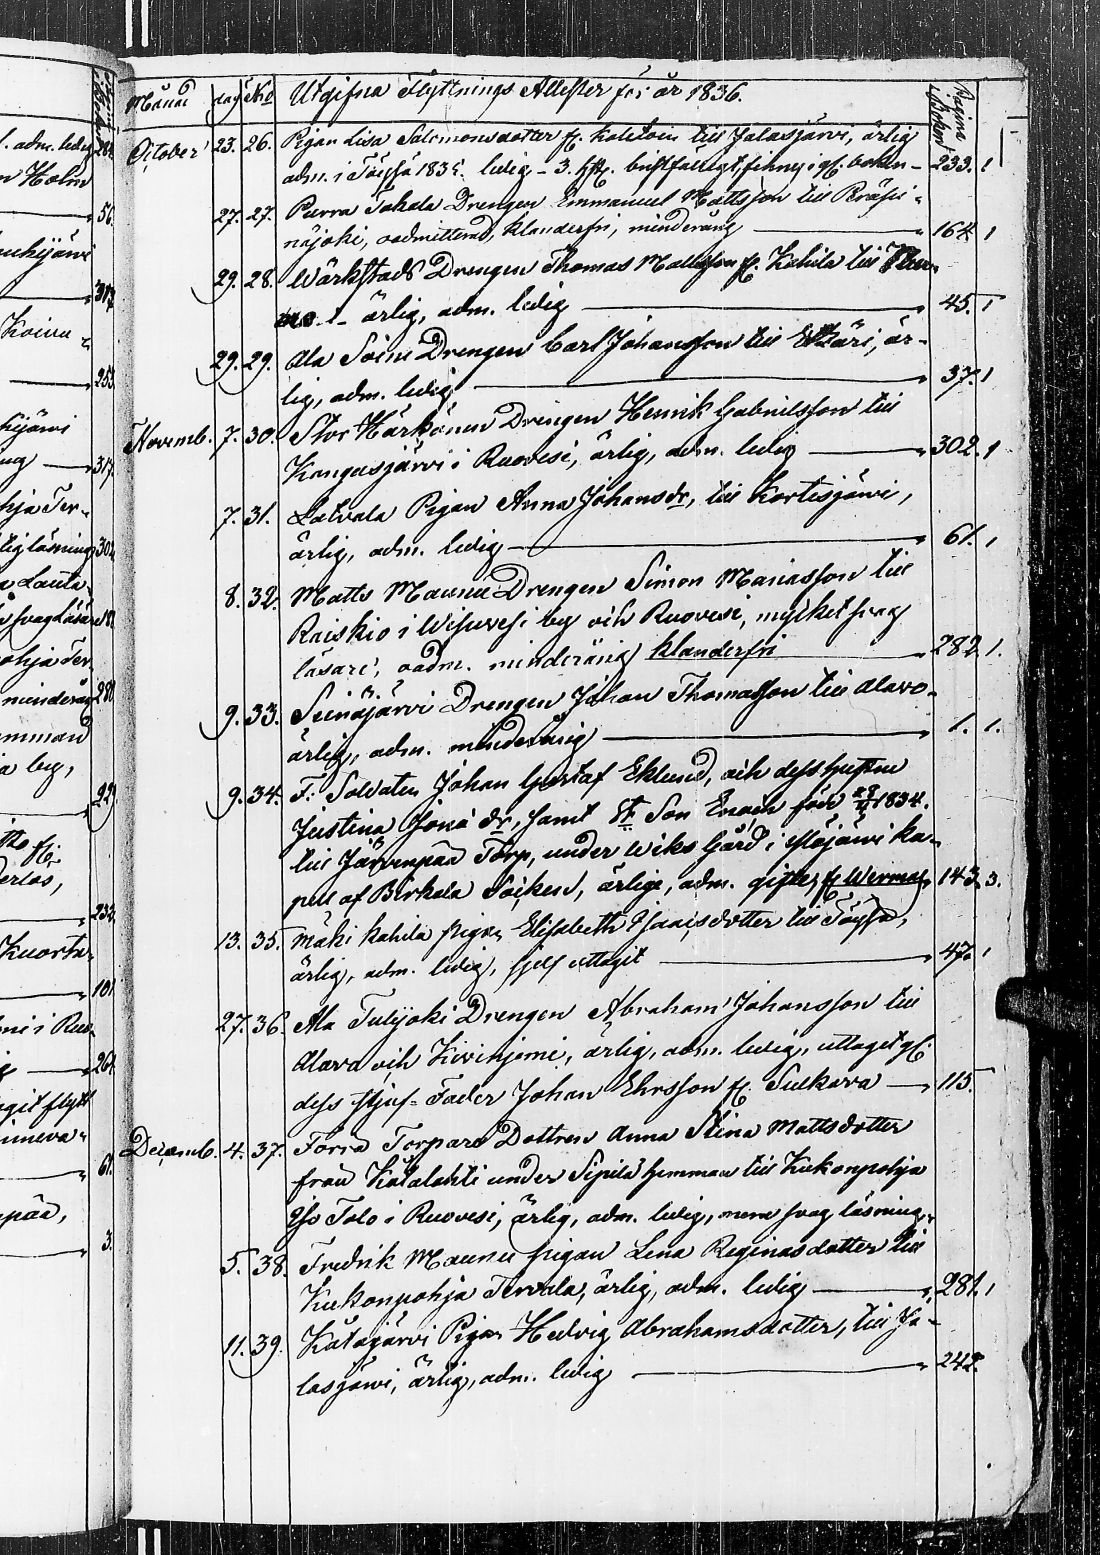 Månad dag No Utgifna Flyttnings Attester för år 1836. Pagina i Boken
October 23. 26. Pigan Lisa Salomonsdotter fr. till Jalasjärvi, ärlig
adm. i Töysä 1835. ledig - 3. boken - 233. 1
27. 27. Purra Kahila Drengen Emmanuel Mattsson till Peräsei-
näjoki, oadmitterad, klanderfri, minderårig 164. 1
29. 28. Wärkstads Drengen Thomas Mattsson fr. Kahila till
ärlig, adm. ledig 45. 1
29. 29. Ala Soini Drengen Carl Johansson till Etzäri, är-
lig, adm. ledig 37. 1
Novemb. 7. 30. Stor Härkönen Drengen Henrik Gabrielsson till
Kangasjärvi i Ruovesi, ärlig, adm. ledig 302. 1
7. 31. Latvala Pigan Anna Johansdr, till Kortesjärvi,
ärlig, adm. ledig 61. 1
8. 32. Matts Maunu Drengen Simon Mariasson till
Raiskio i Wisuvesi by och Ruovesi, mycket svag
läsare, oadm. minderårig klanderfri 282. 1.
9. 33. Seinäjärvi Drengen Johan Thomasson till Alavo-
ärlig, adm. minderårig 1. 1.
9. 34. F. Soldaten Johan Gustaf Eklund, och dess hustru
Justina Jonä dr, samt Son Enoch född 1834.
till Järvenpää Torp, under Wiks Gård i Ka-
pell af Birkala Socken, ärliga, adm. gifta, 143. 3.
13. 35. Mäki Kahila pigan Elisabeth Isaacsdotter till Töysä,
ärlig, adm. ledig, sjelf uttagit 47. 1
27. 36. Ala Tulijoki Drengen Abraham Johansson till
Alavo och Kivinjemi, ärlig, adm. ledig, uttaget af
dess stjuf-Fader Johan Ehrsson fr. Sulkava 115.
Decemb. 4. 37. Förra Torpare Dottren Anna Stina Mattsdotter
från Kätalahti under Sipilä hemman till Kukonpohja
Iso Talo i Ruovesi, ärlig, adm. ledig, men svag läsning
5. 38. Fredrik Maunu pigan Lena Reginasdotter till
Kukonpohja Tervala, ärlig, adm. ledig 281. 1
11. 39. Kätkäjärvi Pigan Hedvig Abrahamsdotter, till Ja-
lasjärvi, ärlig, adm. ledig 242.